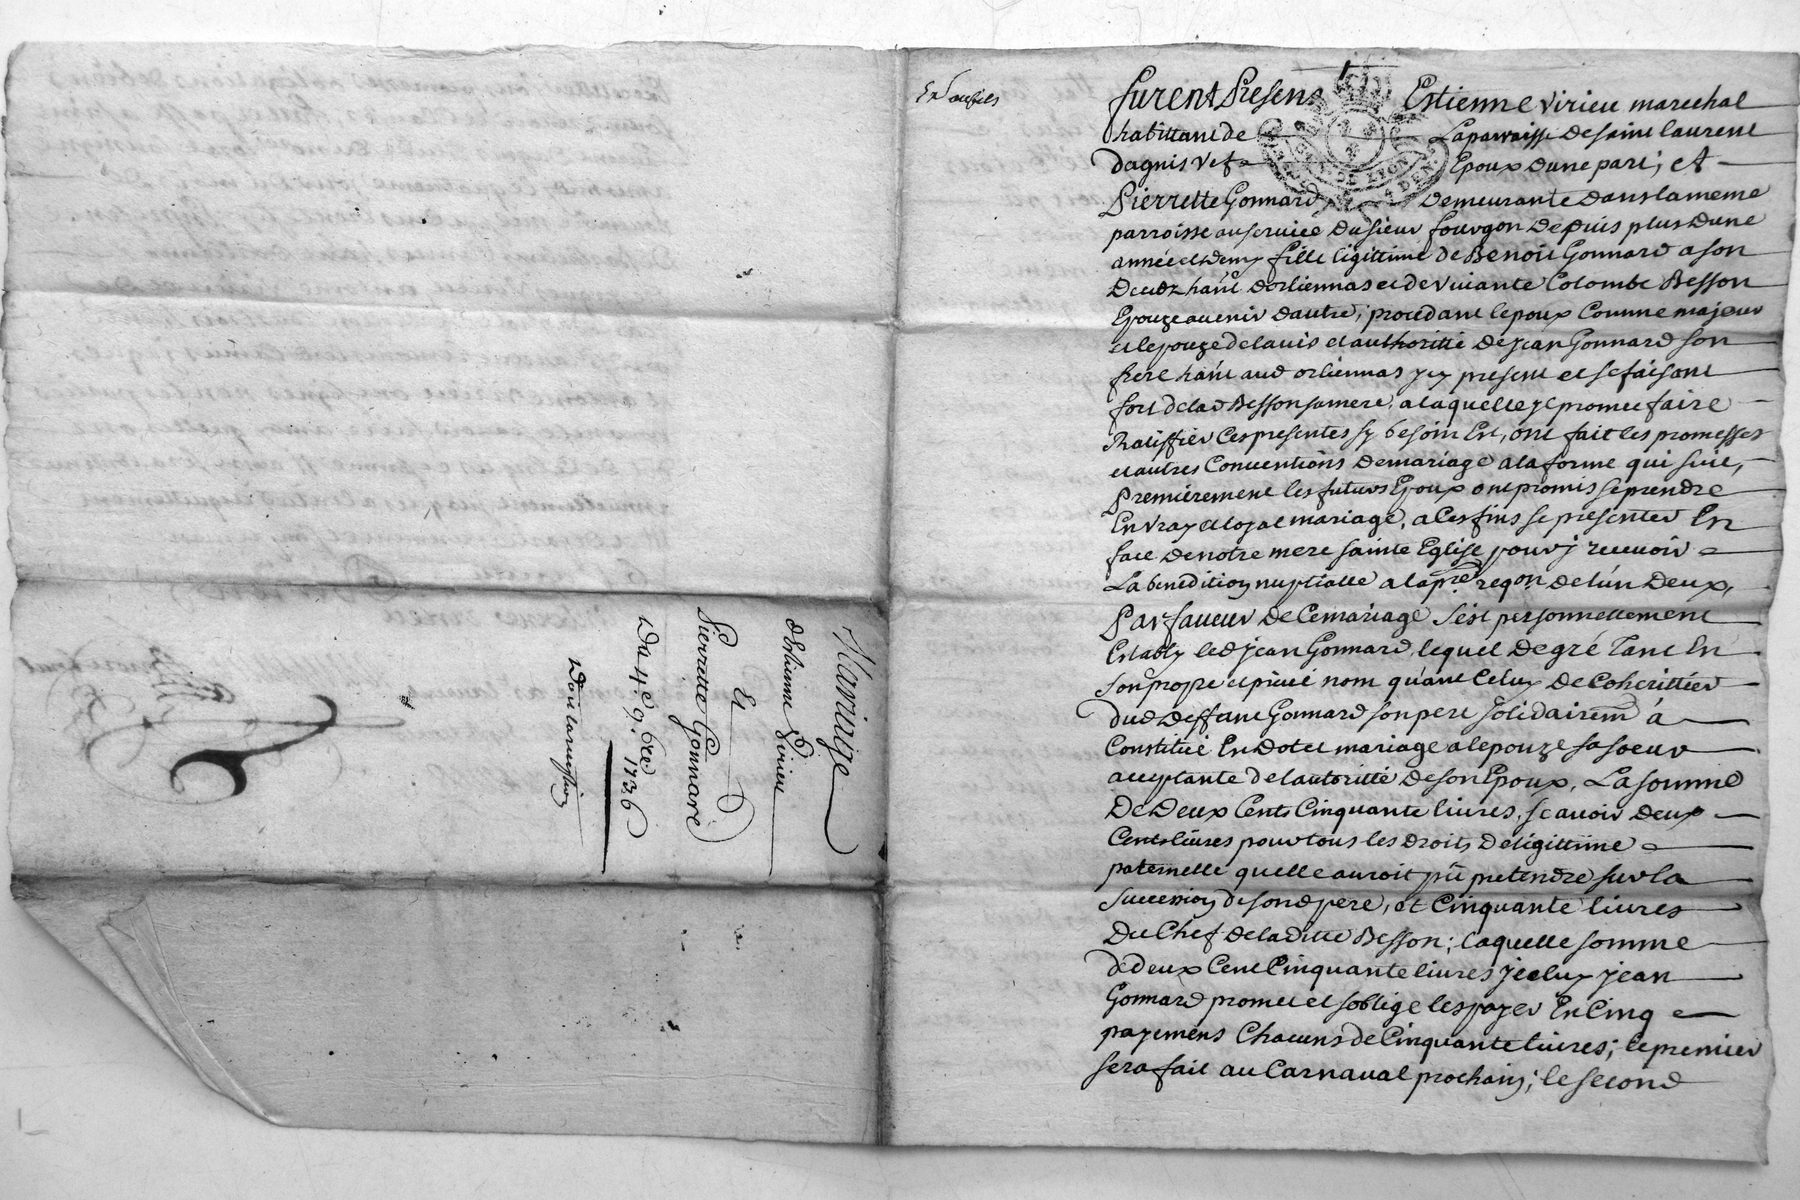 Mariage
d'Estienne Virieu
Et
Pierrette Gonnard
Du 4e. 9.bre 1736
furent Presens Estienne Virieu marechal
habittant de La parroisse de saint laurent
dagnis Vef Epoux dune part; et
Pierrette Gonnard Demeurante dans la meme
parroisse au service du sieur fourgon Depuis plus Dune
année et demy fille legittime de Benoit Gonnard a son
Deced hant dorliennas et de vivante Colombe Besson
Epouze avenir dautre; procedant lepoux Comme majeur
et lepouze de lavis et authoritté de Jean Gonnard son
frere hant aud orliennas icy present et se faisant
fort de lad Besson sa mere, a laquelle il promet faire
Ratiffier Ces presentes sy besoin Est, ont fait les promesses
et autres Conventions De mariage a la forme qui suit,
Premierement les futurs Epoux ont promis se prendre
En vray et loyal mariage, a Ces fins se presenter En
face de notre mere sainte Eglise pour y recevoir
La benedition nuptialle a la pre. reqon de lun Deux,
Par faveur de Ce mariage s'est personnellement
Estably led Jean Gonnard, lequel de gré Tant En
son propre et privé nom qu'au Celuy De Coherittier
dud deffant Gonnard son pere solidairemt à
Constitué En dot et mariage a lepouze sa soeur
acceptante de lautoritté de son Epoux, La somme
De Deux Cents Cinquante livres, scavoir deux
Cents livres pour tous les droits de legittime
paternelle quelle auroit pû pretendre sur la
succession de son d pere, et Cinquante livres
Du Chef de laditte Besson; laquelle somme
de deux Cent Cinquante livres Jceluy Jean
Gonnard promet et soblige les payer En Cinq
payemens Chacuns de Cinquante livres; le premier
sera fait au Carnaval prochain; le second